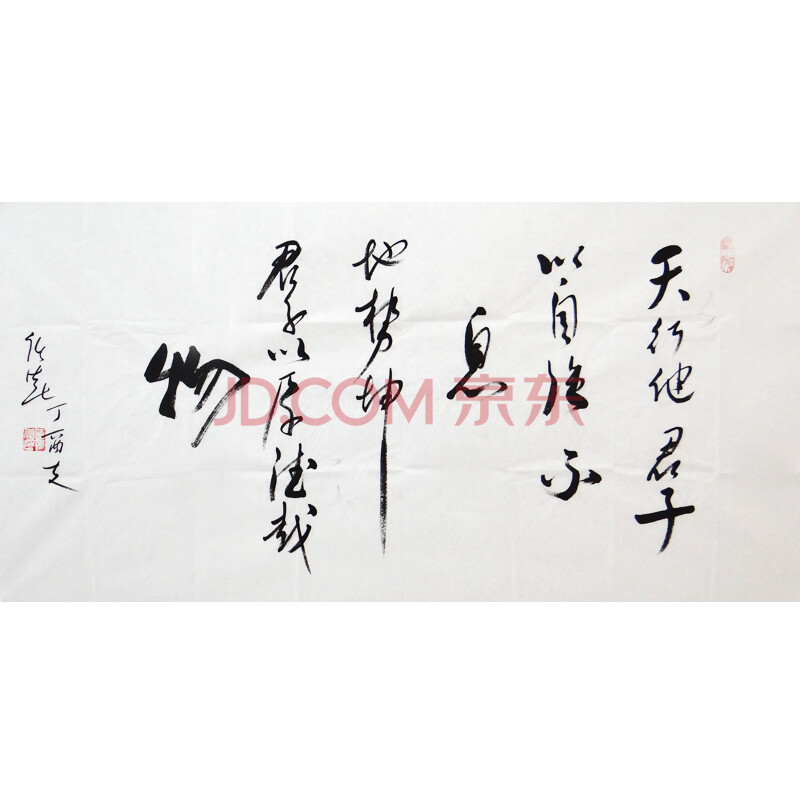 天行健君子
以自强不
息
地势坤
君子以厚德载
物
丁酉
JD.COM 京东